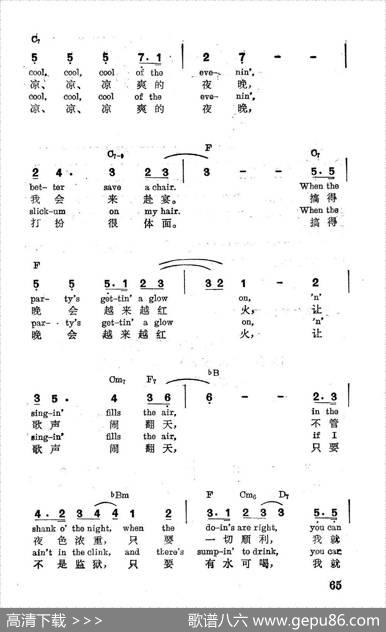 C7
5 5 5 7. 1 | 2 7 - - |
cool, cool, cool of the eve- nin',
凉、凉、凉 爽的 夜 晚,
cool, cool, cool of the eve- nin',
凉、凉、凉 爽的 夜 晚,
C7-9 F C7
2 4. 3 2 3 | 3 - - 5. 5 |
bet- ter save a chair. When the
我 会 来 赴宴。 搞得
slick-um on my hair. When the
打 扮 很 体面。 搞得
F
5 5 5. 1 2 3 | 3 2 1 - 2 |
par- ty's get-tin' a glow on, 'n'
晚 会 越来越红 火, 让
par- ty's get-tin' a glow on, 'n'
晚 会 越来越红 火, 让
Cm7 F7 bB
3 5. 4 3 6 | 6 - - 2. 3 |
sing-in' fills the air, in the
歌声 闹 翻天, 不管
sing-in' fills the air, if I
歌声 闹 翻天, 只要
bBm F Cm6 D7
4. 2 3 4 4 | 3. 1 2 3 3 5. 5 |
shank o' the night, when the do-in's are right, you can
夜 色 浓重, 只 要 一 切 顺利, 我就
ain't in the clink, and there's sump-in' to drink, you can
不 是 监狱, 只 要 有 水 可喝, 我就
65
高清下载 >>> 歌谱八六 www.gepu86.com